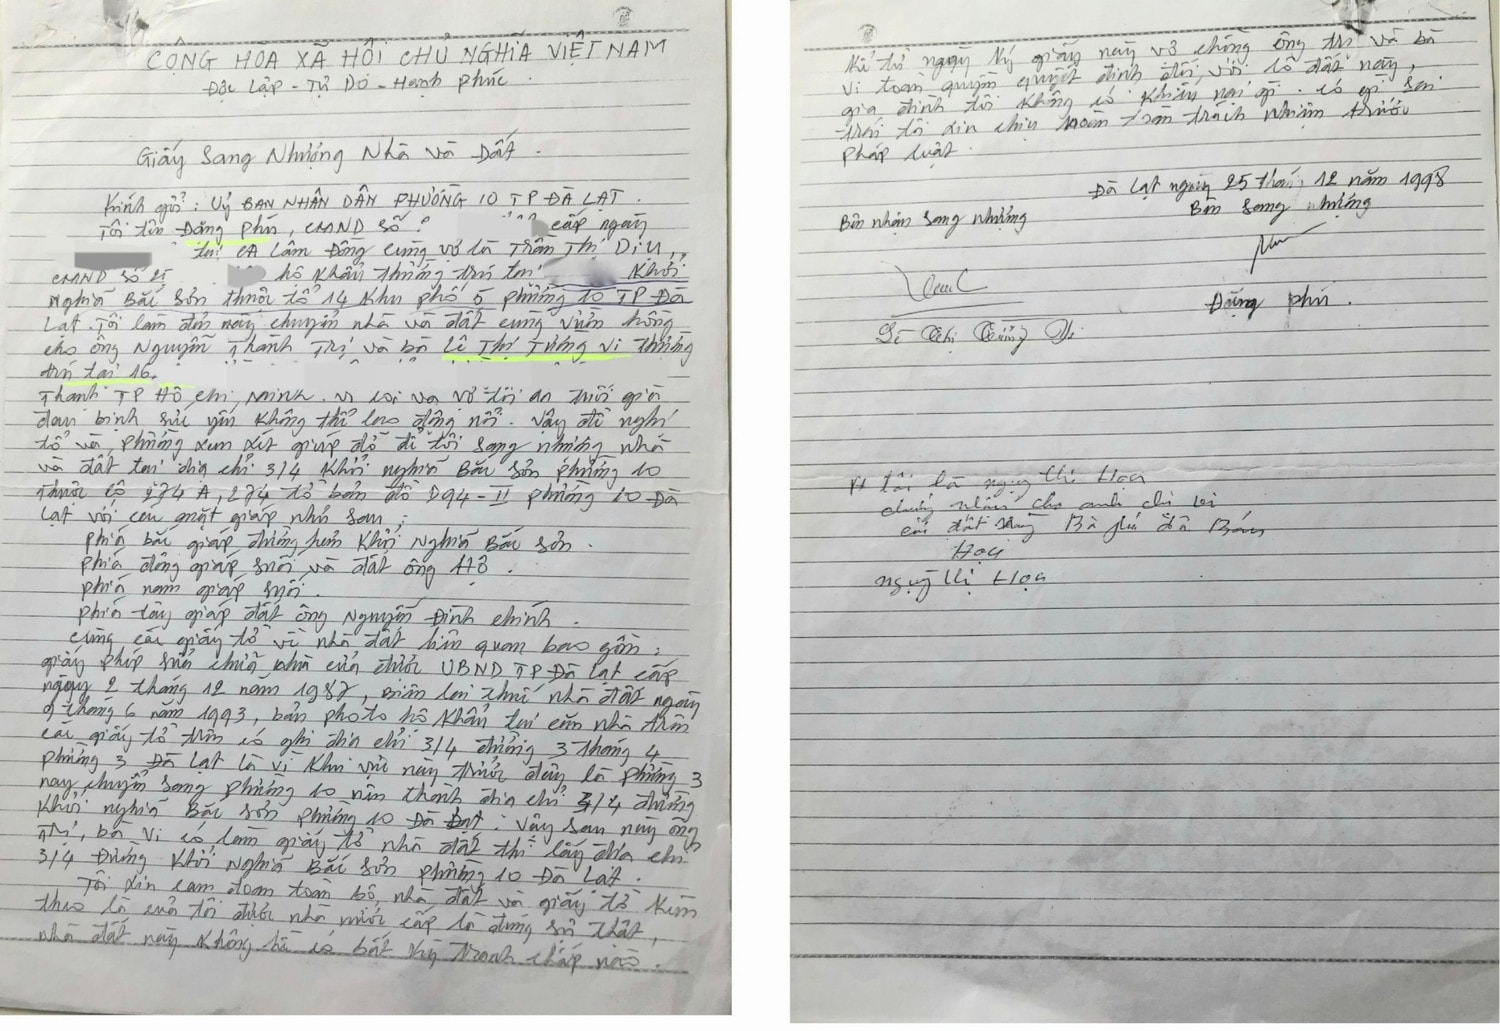 CỘNG HÒA XÃ HỘI CHỦ NGHĨA VIỆT NAM
Độc Lập - Tự Do - Hạnh Phúc.
Giấy Sang Nhượng Nhà và Đất.
Kính gửi: Uỷ BAN NHÂN DÂN PHƯỜNG 10 TP ĐÀ LẠT.
Tôi tên Đặng Phú, CMND SỐ: cấp ngày
tại CA Lâm Đồng cùng vợ là Trần Thị Dịu,
CMND số hộ khẩu thường trú tại Khởi
Nghĩa Bắc Sơn thuộc tổ 14 Khu phố 5 phường 10 TP Đà
Lạt. Tôi làm đơn này chuyển nhà và đất cùng vườn hồng
cho ông Nguyễn Thanh Trị và bà Lê Thị Tường Vi thường
trú tại 16.
Thạnh TP Hồ chi minh. vì tôi và vợ tôi an tuổi già
đau bịnh sức yếu không thể lao động nổi. Vậy đề nghị
tổ và phường xem xét giúp đỡ để tôi sang nhượng nhà
và đất tại địa chỉ 3/4 Khởi nghĩa Bắc Sơn phường 10
thuộc lô 274 A, 274 tờ bản đồ D94-II phường 10 Đà
Lạt với các mặt giáp như sau:
phía bắc giáp đường hẻm Khởi Nghĩa Bắc Sơn.
phía đông giáp suối và đất ông Hộ.
phía nam giáp suối.
phía tây giáp đất ông Nguyễn Đình chính.
cùng các giấy tờ về nhà đất liên quan bao gồm:
giấy phép sửa chữa nhà cửa được UBND TP Đà Lạt cấp
ngày 2 tháng 12 năm 1987, biên lai thuế nhà đất ngày
9 tháng 6 năm 1993, bản photo hộ khẩu tại căn nhà trên
các giấy tờ trên có ghi địa chỉ 3/4 đường 3 tháng 4
phường 3 Đà Lạt là vì khu vực này trước đây là phường 3
nay chuyển sang phường 10 nên thành địa chỉ 3/4 đường
Khởi nghĩa Bắc Sơn phường 10 Đà Lạt. Vậy sau này ông
Trị, bà Vi có làm giấy tờ nhà đất thì lấy địa chỉ
3/4 Đường Khởi Nghĩa Bắc Sơn phường 10 Đà Lạt.
Tôi xin cam đoan toàn bộ nhà đất và giấy tờ kèm
theo là của tôi được nhà nước cấp là đúng sự thật,
nhà đất này không hề có bất kỳ tranh chấp nào.
Kể từ ngày ký giấy này vợ chồng ông trị và bà
vi toàn quyền quyết định đối với lô đất này,
gia đình tôi không có khiếu nại gì. có gì sai
trái tôi xin chịu hoàn toàn trách nhiệm trước
pháp luật.
Đà Lạt ngày 25 tháng 12 năm 1998
Bên nhận sang nhượng
Bên sang nhượng
Đặng phú.
Lê Thị Tường Vi
tôi là ngụy thị Họa
chứng nhận cho anh chị vi
cái đất Bà phú đã Bán
Họa
ngụy thị Họa